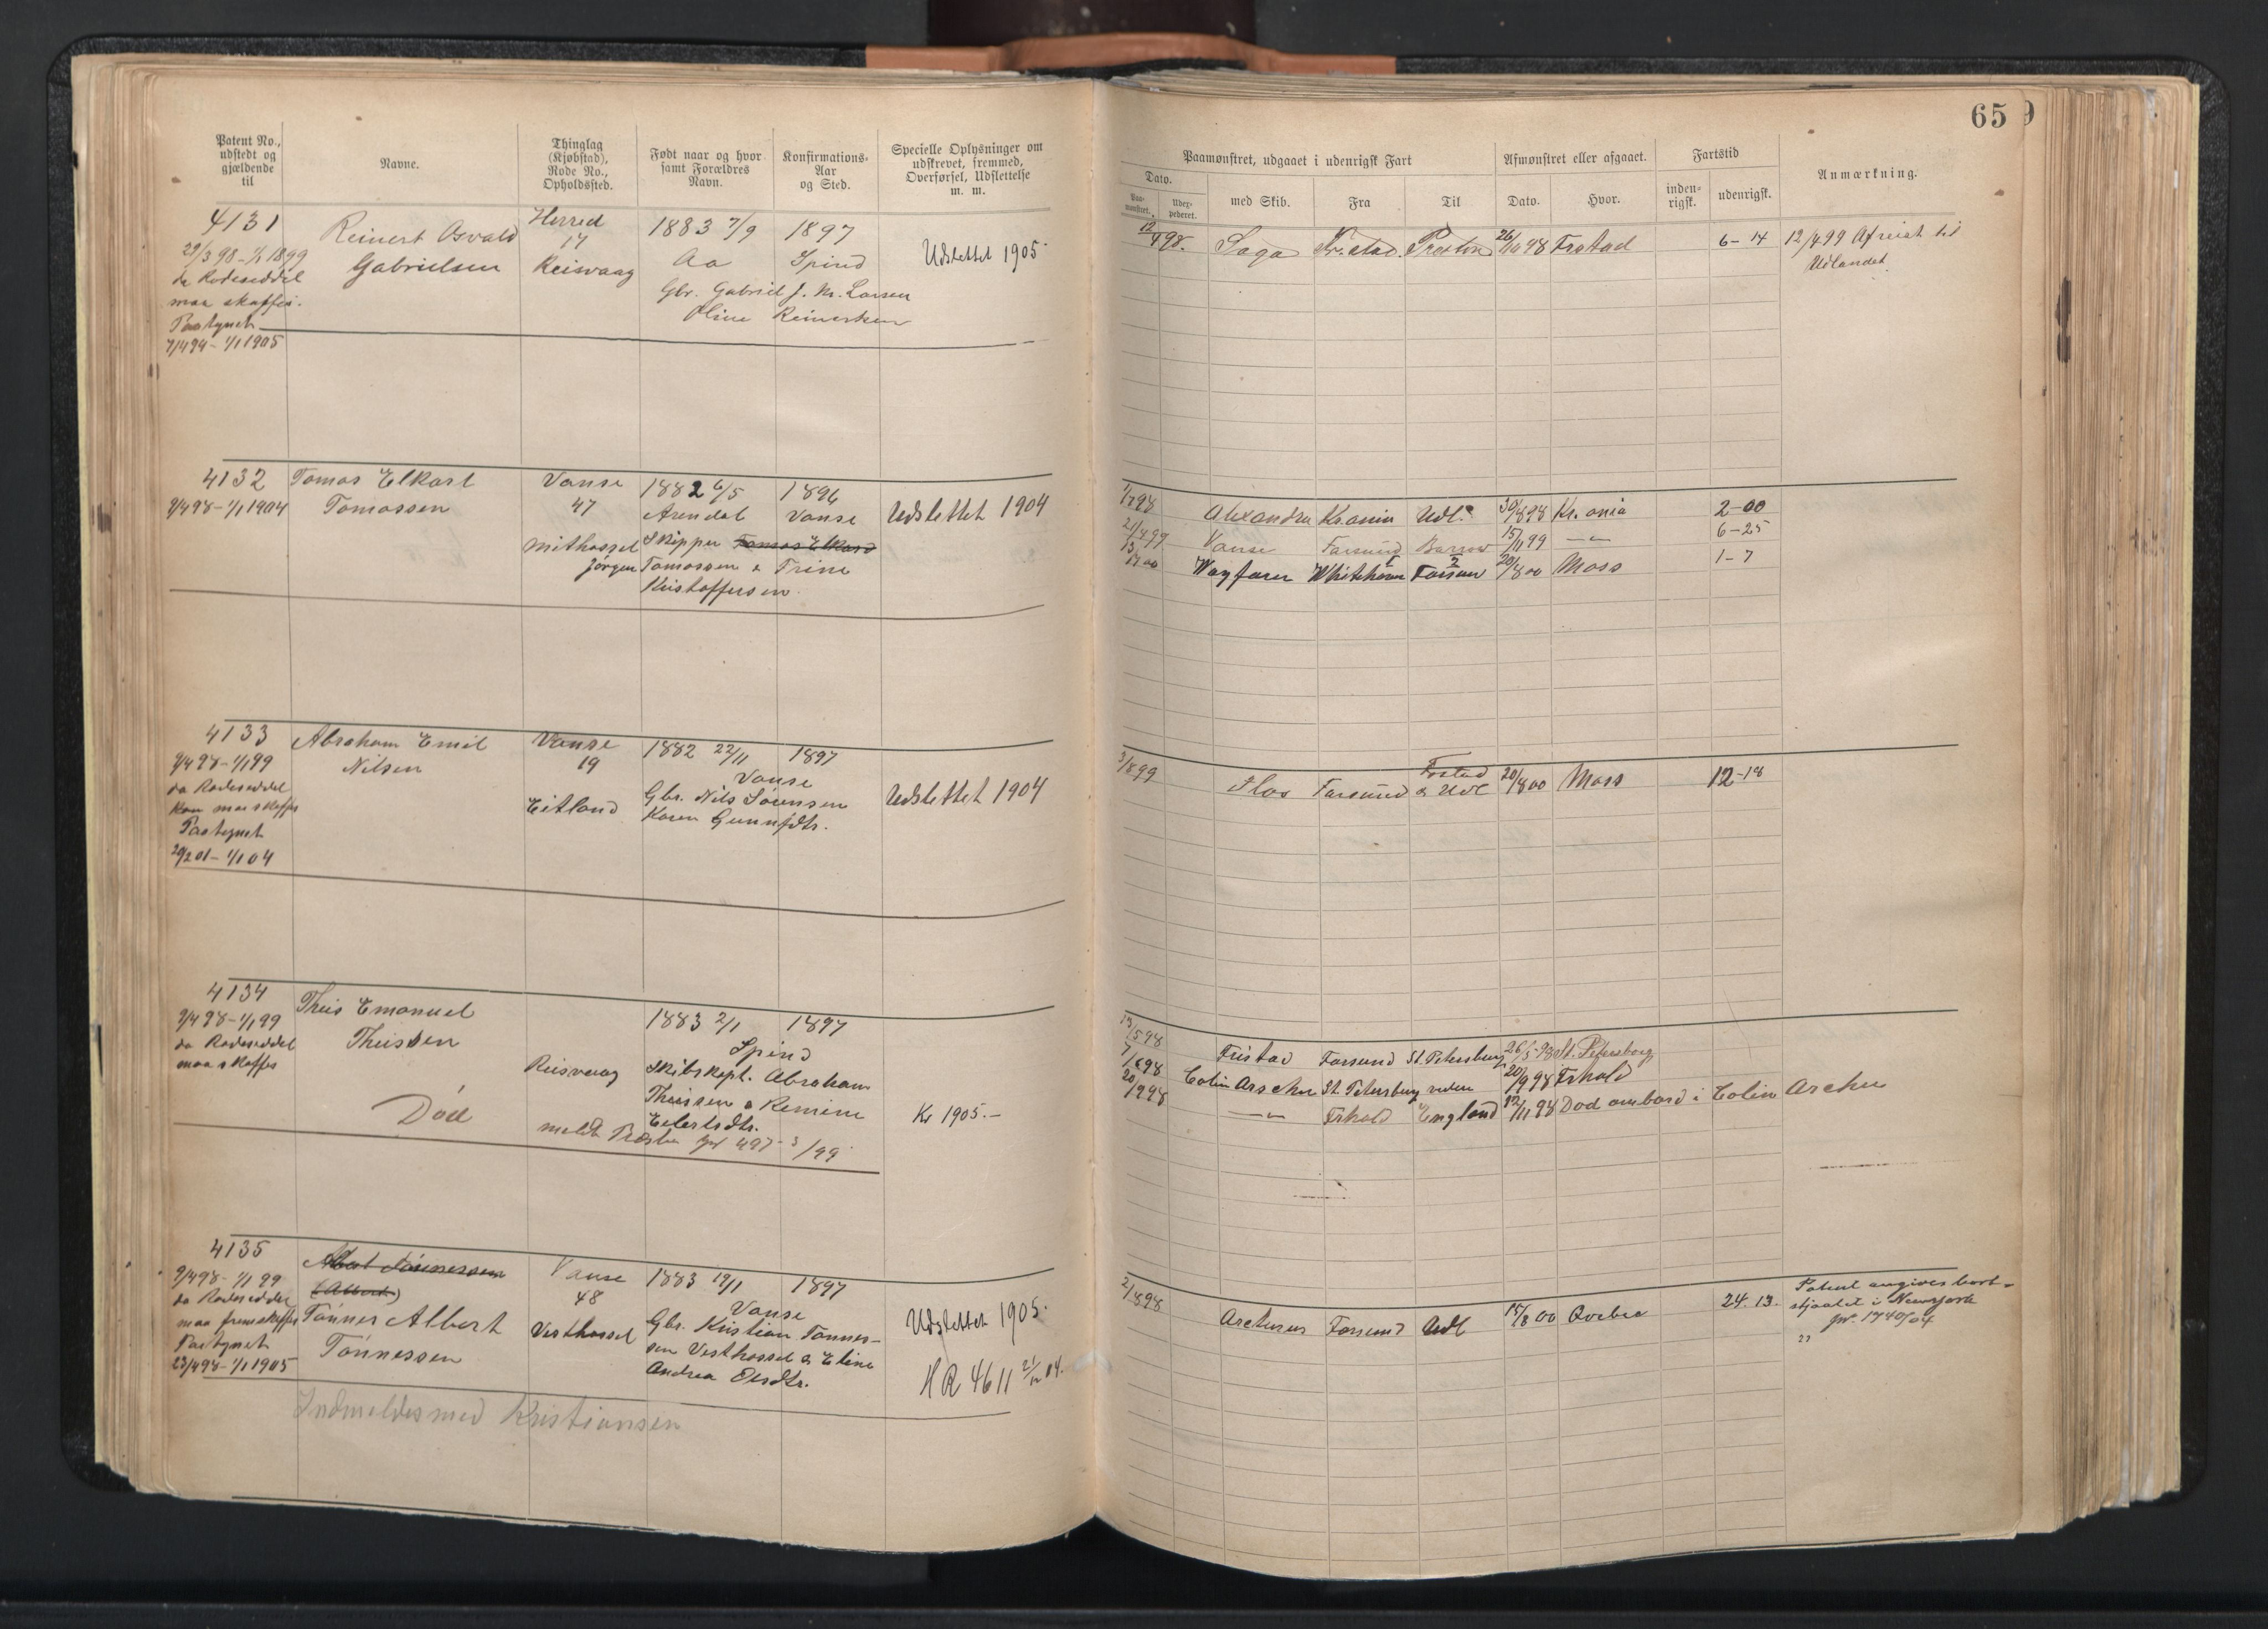 Patent No.,
udstedt og
gjældende
til
Navne.
Thinglag
(Kjøbstad),
Rode No.,
Opholdssted.
Født naar og hvor
samt Forældres
Navn.
Konfirmations-
Aar
og Sted.
Specielle Oplysninger om
udskrevet, fremmed,
Overførsel, Udslettelse
m. m.
4131
29/3 98 - 1/1 1899
da Rodeseddel
maa skaffes.
Reinert Osvald
Gabrielsen
Herred
17
Reisvaag
1883 7/9
Aa
Gbr. Gabriel J. M. Larsen
Oline Reinertsen
1897
Spind
Udslettet 1905
7/4 99 - 1/1 1905
4132
9/4 98 - 1/1 1904
Tomas Elkart
Tomassen
Vanse
47
Mithassel
1882 6/5
Arendal
Skipper Tomas Elkard
Jörgen Tomassen & Trine
Kristoffersen
1896
Vanse
Udslettet 1904
4133
9/4 98 - 1/1 99
da Rodeseddel
maa skaffes
Paategnet
20/2 01 - 1/1 04
Abraham Emil
Nilsen
Vanse
19
Eitland
1882 22/11
1897
Vanse
Gbr. Nils Sörensen
Karen Gunnfdtr.
Udslettet 1904
4134
9/4 98 - 1/1 99
da Rodeseddel
maa skaffes
Theis Emanuel
Theissen
Död
Reisvaag
1883 2/1
1897
Spind
Skibskapt. Abraham
Theissen & Remine
Eilertsdtr.
Kr 1905.-
4135
9/4 98 - 1/1 99
da Rodeseddel
maa fremskaffes
Paategnet
23/4 98 - 1/1 1905
(Albert)
Tönnes Albert
Tönnessen
Vanse
48
Vesthassel
1883 19/1
1897
Vanse
Gbr. Kristian Tönnes-
sen Vesthassel & Eline
Andrea Olsdtr.
Udslettet 1905.
HR 4611 21/12 04.
Indmeldes med Kristiansen
659
Paamønstret, udgaaet i udenrigsk Fart
Afmønstret eller afgaaet.
Fartstid
Anmærkning.
Dato.
Paa-
mønstret.
Udex-
pederet.
med Skib.
Fra
Til
Dato.
Hvor.
inden-
rigsk.
udenrigsk.
12/4 98. Saga Fr.stad. Preston 26/10 98 Frstad 6-14 12/4 99 Afreist til
Udlandet
1/7 98 Alexandra Kr.ania Udl. 30/8 98 Kr.ania 2-00
21/4 99 Vanse Farsund Barrow 15/11 99 -"- 6-25
13/7 00 Wayfarer Whitehaven Farsund 20/8 00 Moss 1-7
3/8 99 Flos Farsund Frstad & Udl 20/8 00 Moss 12-18
13/5 98 Fristad Farsund St. Petersburg 26/5-98 St. Petersborg
7/6 98 Colin Archer St. Petersburg 20/9 98 Frhald
20/9 98 -"- Frhald England 12/11 98 Död ombord i Colin Archer
2/8 98 Arcturus Farsund Udl 15/8 00 Qvebec 24.13. Patent angives bort-
stjaalet i Newyork
pr. 1740/04
"